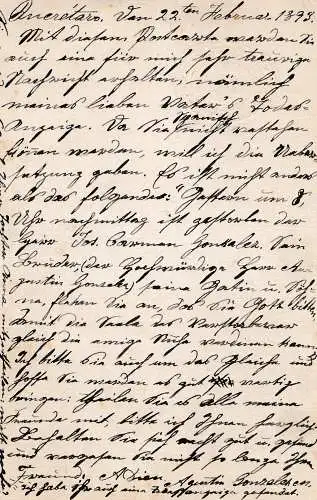 Queretaro. Den 22.ten Februar 1893.
Mit diesen Postcarte werden Sie
auch eine für mich sehr traurige
Nachricht erhalten, nämlich
meines lieben Vater's Todes-
Anzeige. Da Sie spanisch nicht verstehen
könen werden, will ich die Ueber-
setzung geben. Es ist nicht anders
als das folgendes: "Gestern um 8
Uhr nachmittag ist gestorben der
Herr Jos. German Gonzalez. Sein
Bruder, (der Hochwürdige Herr Au-
gustin Gonzalez) seine Gatin u. Söh-
ne, flehen Sie an, das Sie Gott bitten,
damit die Seele des Verstorbener
gleich die ewige Ruhe verdienen kann."
Ich bitte Sie auch um das Gleiche und
hoffe Sie werden es gut fertig
bringen: theilen Sie es alle meine
Freunde mit, bitte ich Ihnen herzlich.
Erhalten Sie sich recht gut u. gesund
und vergessen Sie nicht so lange Ihren
Freund, Adieu Agustin Gonzalez
Ich habe Ihr auch eine gesandt.